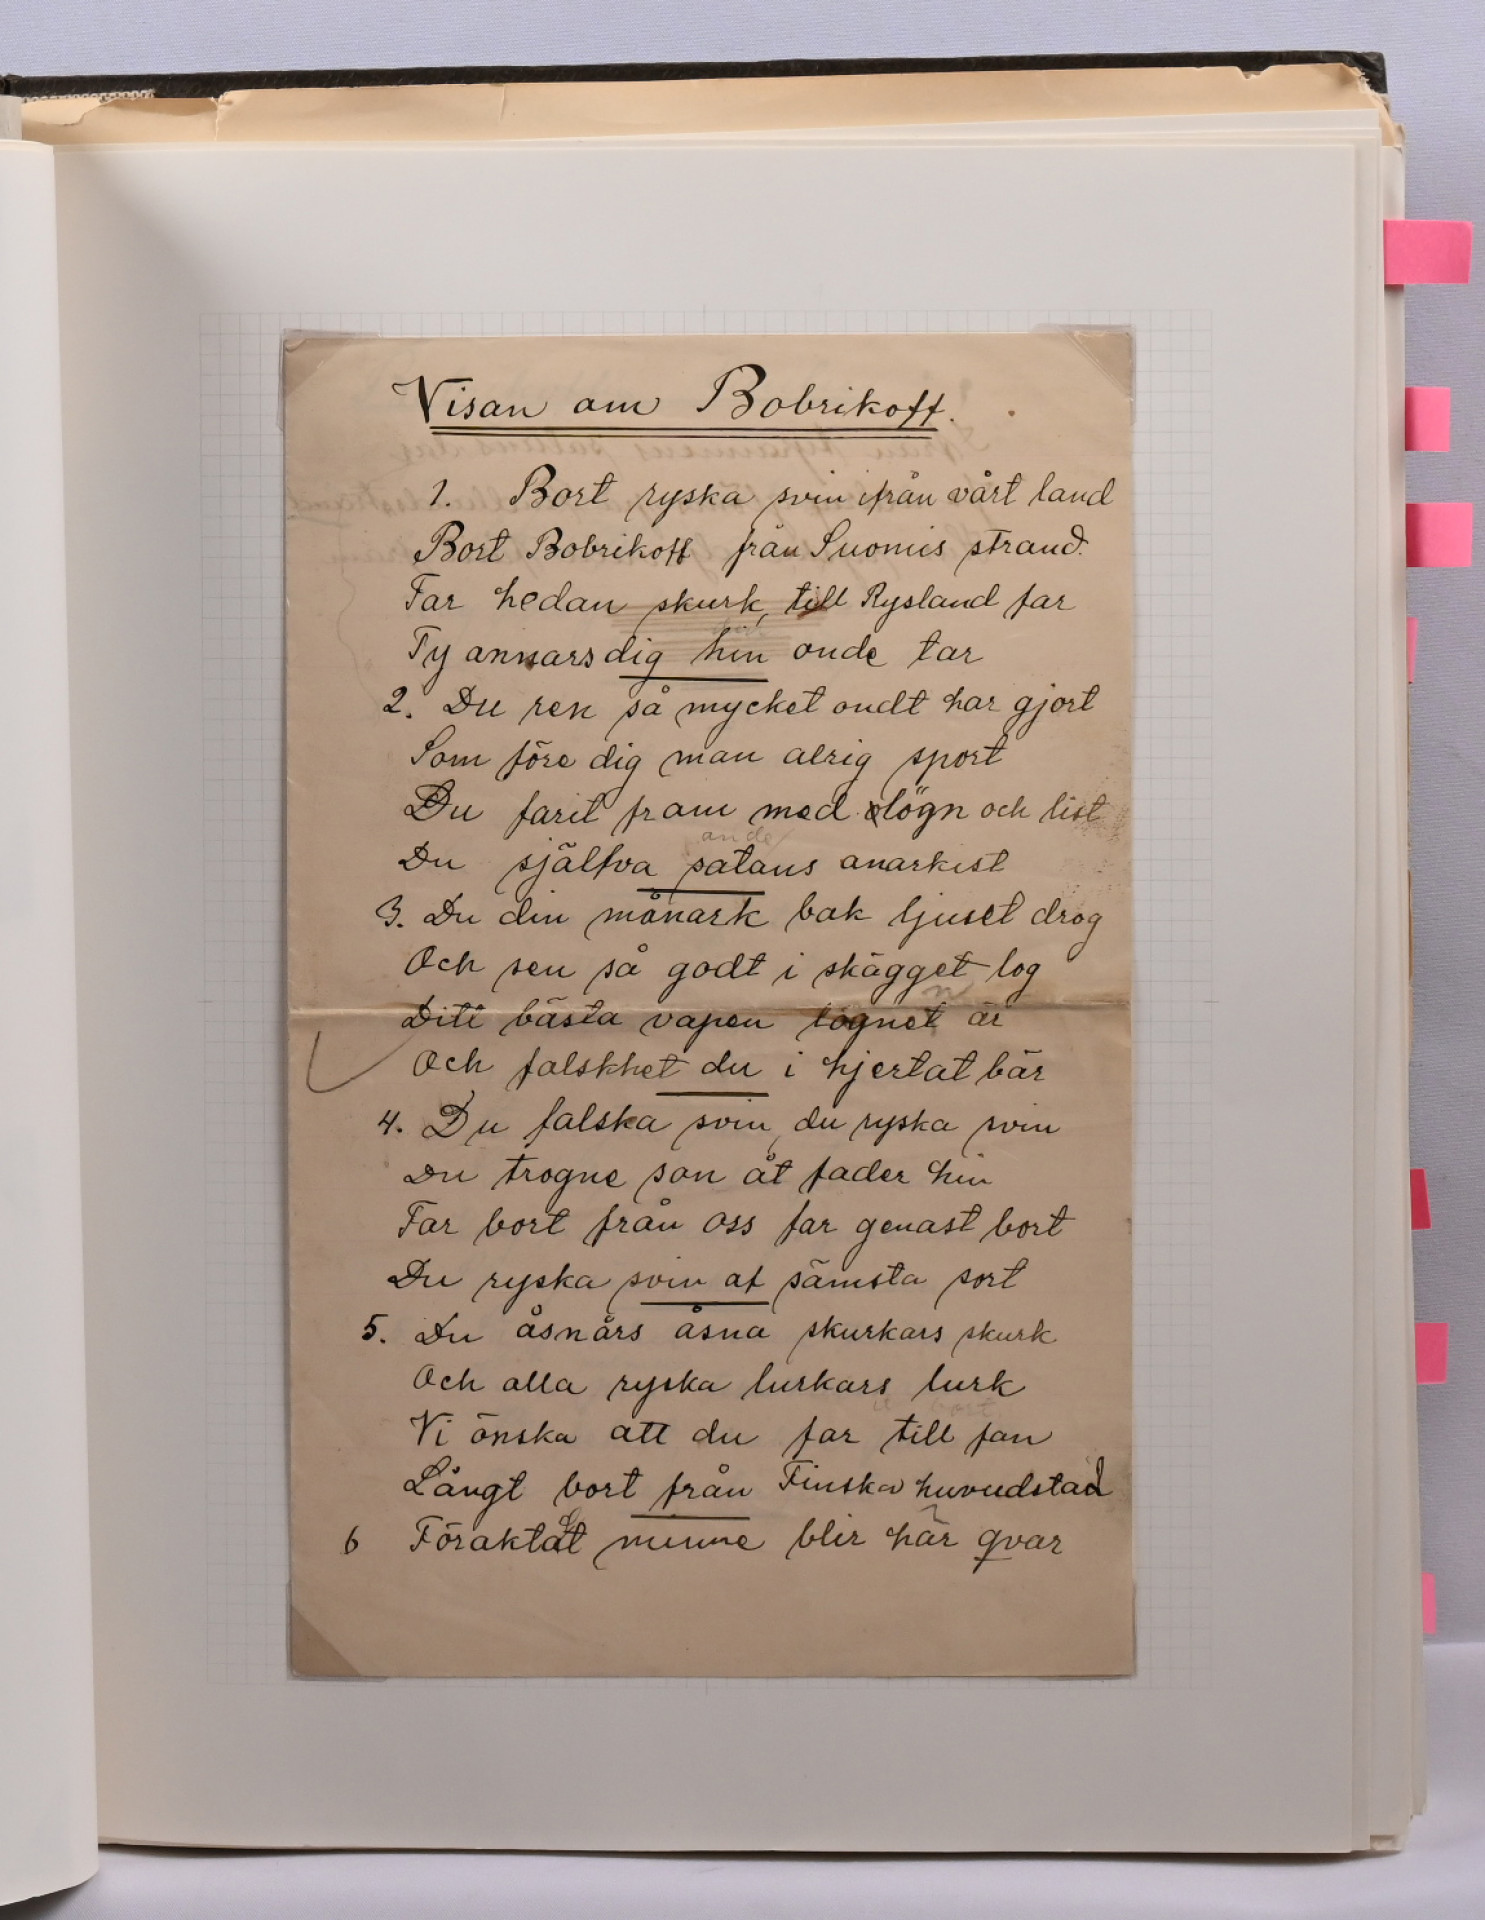 Visan om Bobrikoff.
1. Bort ryska svin ifrån vårt land
Bort Bobrikoff från Suomis strand.
Far hedan skurk, till Rysland far
Ty annars dig hin onde tar
2. Du ren så mycket ondt har gjort
Som före dig man alrig sport
Du farit fram med lögn och list
ande
Du själfva satans anarkist
3. Du din månark bak ljuset drog
Och sen så godt i skägget log
n
Ditt bästa vapen lögnet är
Och falskhet du i hjertat bär
4. Du falska svin, du ryska svin
Du trogne son åt fader hin
Far bort från oss far genast bort
Du ryska svin af sämsta sort
5. Du åsnårs åsna skurkars skurk
Och alla ryska lurkars lurk
Vi önska att du far till fan
Långt bort från Finska huvudstad
6 Föraktat minne blir här qvar